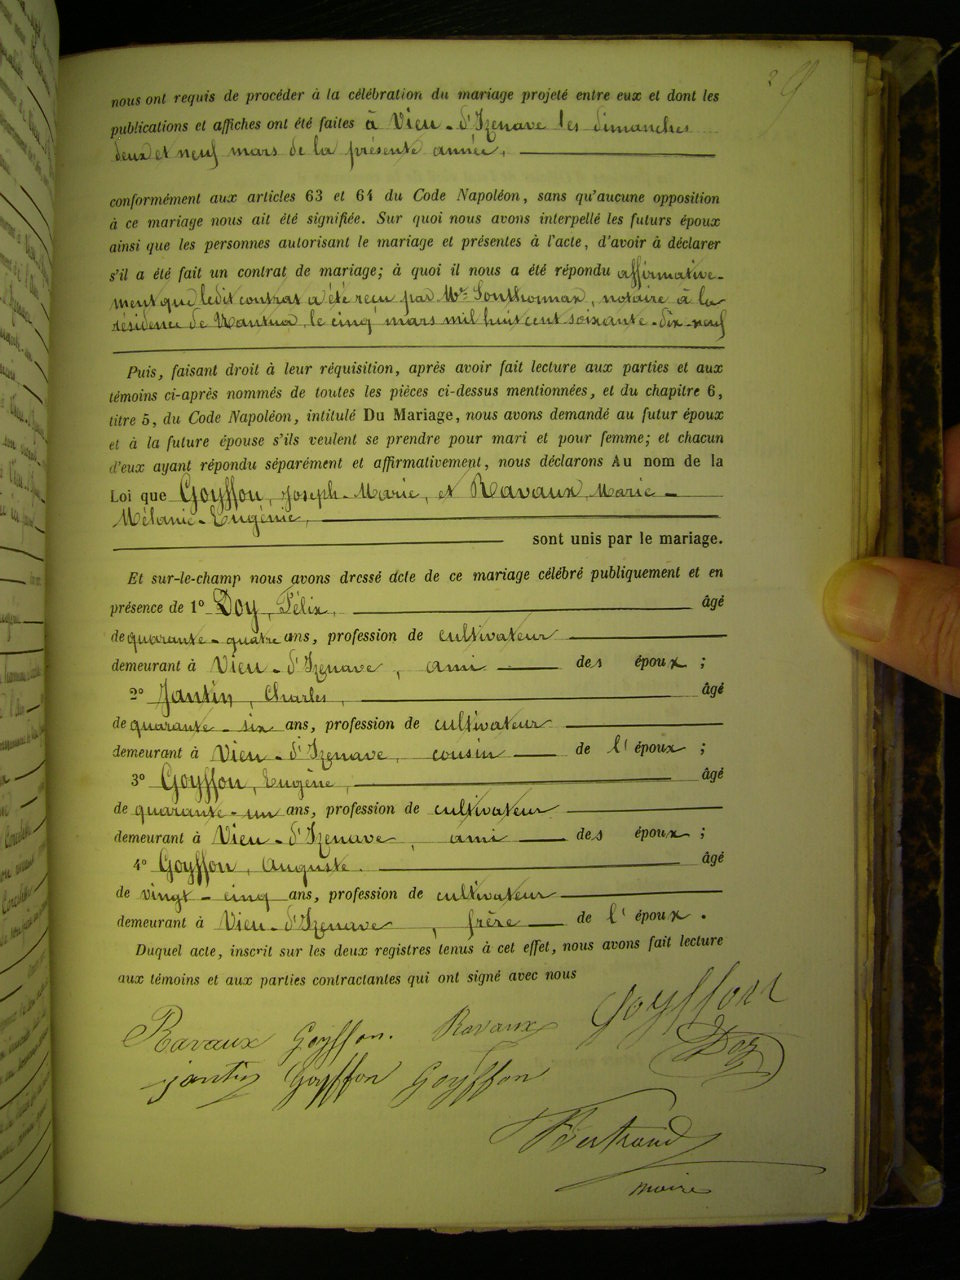 9
nous ont requis de procéder à la célébration du mariage projeté entre eux et dont les
publications et affiches ont été faites à Vieu-d'Izenave les dimanches
deux et neuf mars de la présente année,
conformément aux articles 63 et 64 du Code Napoléon, sans qu'aucune opposition
à ce mariage nous ait été signifiée. Sur quoi nous avons interpellé les futurs époux
ainsi que les personnes autorisant le mariage et présentes à l'acte, d'avoir à déclarer
s'il a été fait un contrat de mariage; à quoi il nous a été répondu affirmative-
ment que ledit contrat a été reçu par Me Sonthonnax, notaire à la
résidence de Nantua, le cinq mars mil huit cent soixante-dix-neuf
Puis, faisant droit à leur réquisition, après avoir fait lecture aux parties et aux
témoins ci-après nommés de toutes les pièces ci-dessus mentionnées, et du chapitre 6,
titre 5, du Code Napoléon, intitulé Du Mariage, nous avons demandé au futur époux
et à la future épouse s'ils veulent se prendre pour mari et pour femme; et chacun
d'eux ayant répondu séparément et affirmativement, nous déclarons Au nom de la
Loi que Goyffon, Joseph-Marie, et Ravaux, Marie-
Mélanie-Eugénie,
sont unis par le mariage.
Et sur-le-champ nous avons dressé acte de ce mariage célébré publiquement et en
présence de 1° Doy, Félix, âgé
de quarante-quatre ans, profession de cultivateur
demeurant à Vieu-d'Izenave, ami des époux;
2° Jantin, Charles, âgé
de quarante-six ans, profession de cultivateur
demeurant à Vieu-d'Izenave, cousin de l'époux;
3° Goyffon, Eugène, âgé
de quarante-un ans, profession de cultivateur
demeurant à Vieu-d'Izenave, ami des époux;
4° Goyffon, Auguste. âgé
de vingt-cinq ans, profession de cultivateur
demeurant à Vieu-d'Izenave, frère de l'époux.
Duquel acte, inscrit sur les deux registres tenus à cet effet, nous avons fait lecture
aux témoins et aux parties contractantes qui ont signé avec nous
Ravaux Goyffon. Ravaux Goyffon
Jantin Goyffon Goyffon Doy
Bertrand
maire